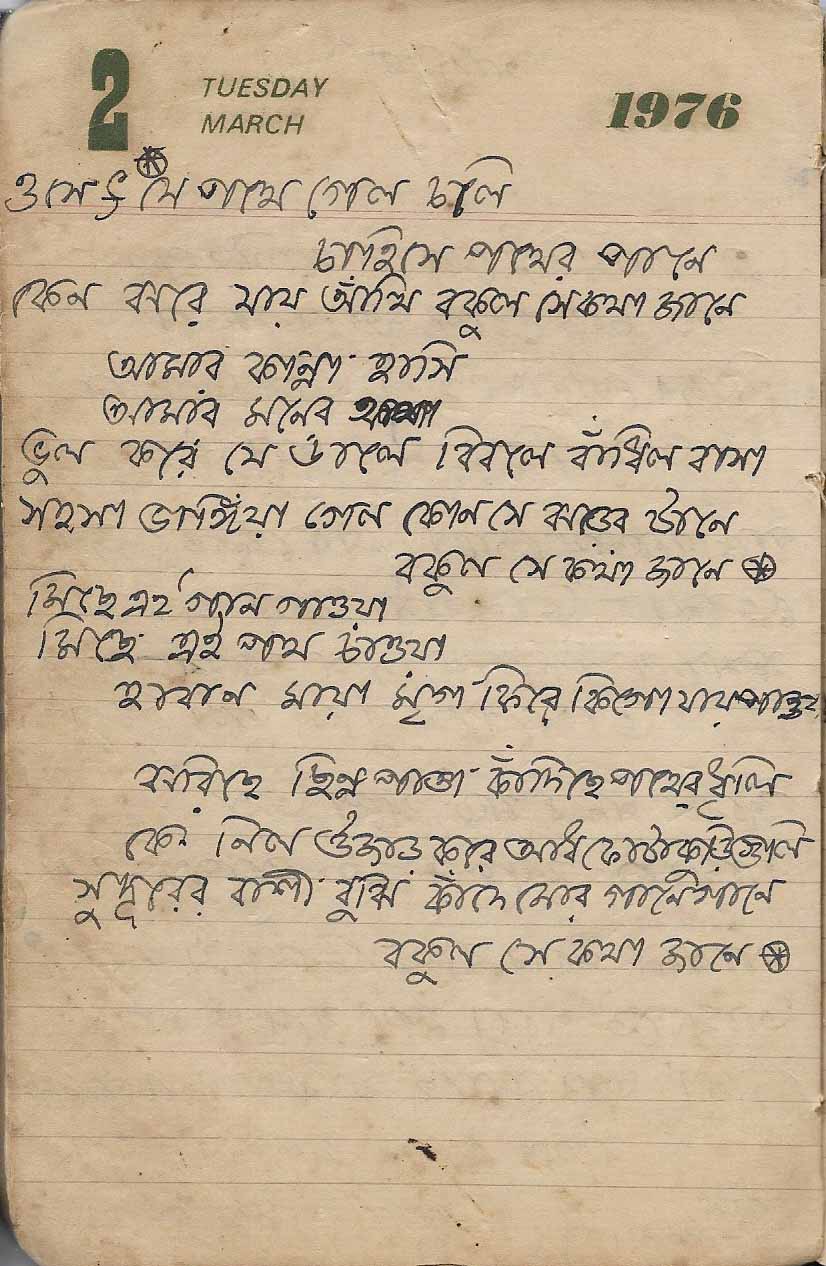 2 TUESDAY MARCH 1976
ওসে যে পথে গেল চলি
চাহিসে পথের পানে
কেন ঝরে যায় আঁখি বকুল সেকথা জানে
আমার কান্না হাসি
আমার মনের আশা
ভুল করে যে ডালে বিরলে বাঁধিল বাসা
সহসা ভাঙ্গিয়া গেল কোন সে ঝড়ের টানে
বকুল সে কথা জানে
মিছে এই গান গাওয়া
মিছে এই পথ চাওয়া
হারান মায়া মৃগ ফিরে কিগো যায়
ঝরিছে ছিন্ন পাতা কাঁদিছে পথের ধূলি
কে নিল উজাড় করে আধ ফোটা কুঁড়িগুলি
সুদূরের বাশী বুঝি কাঁদে মোর গানে গানে
বকুল সে কথা জানে